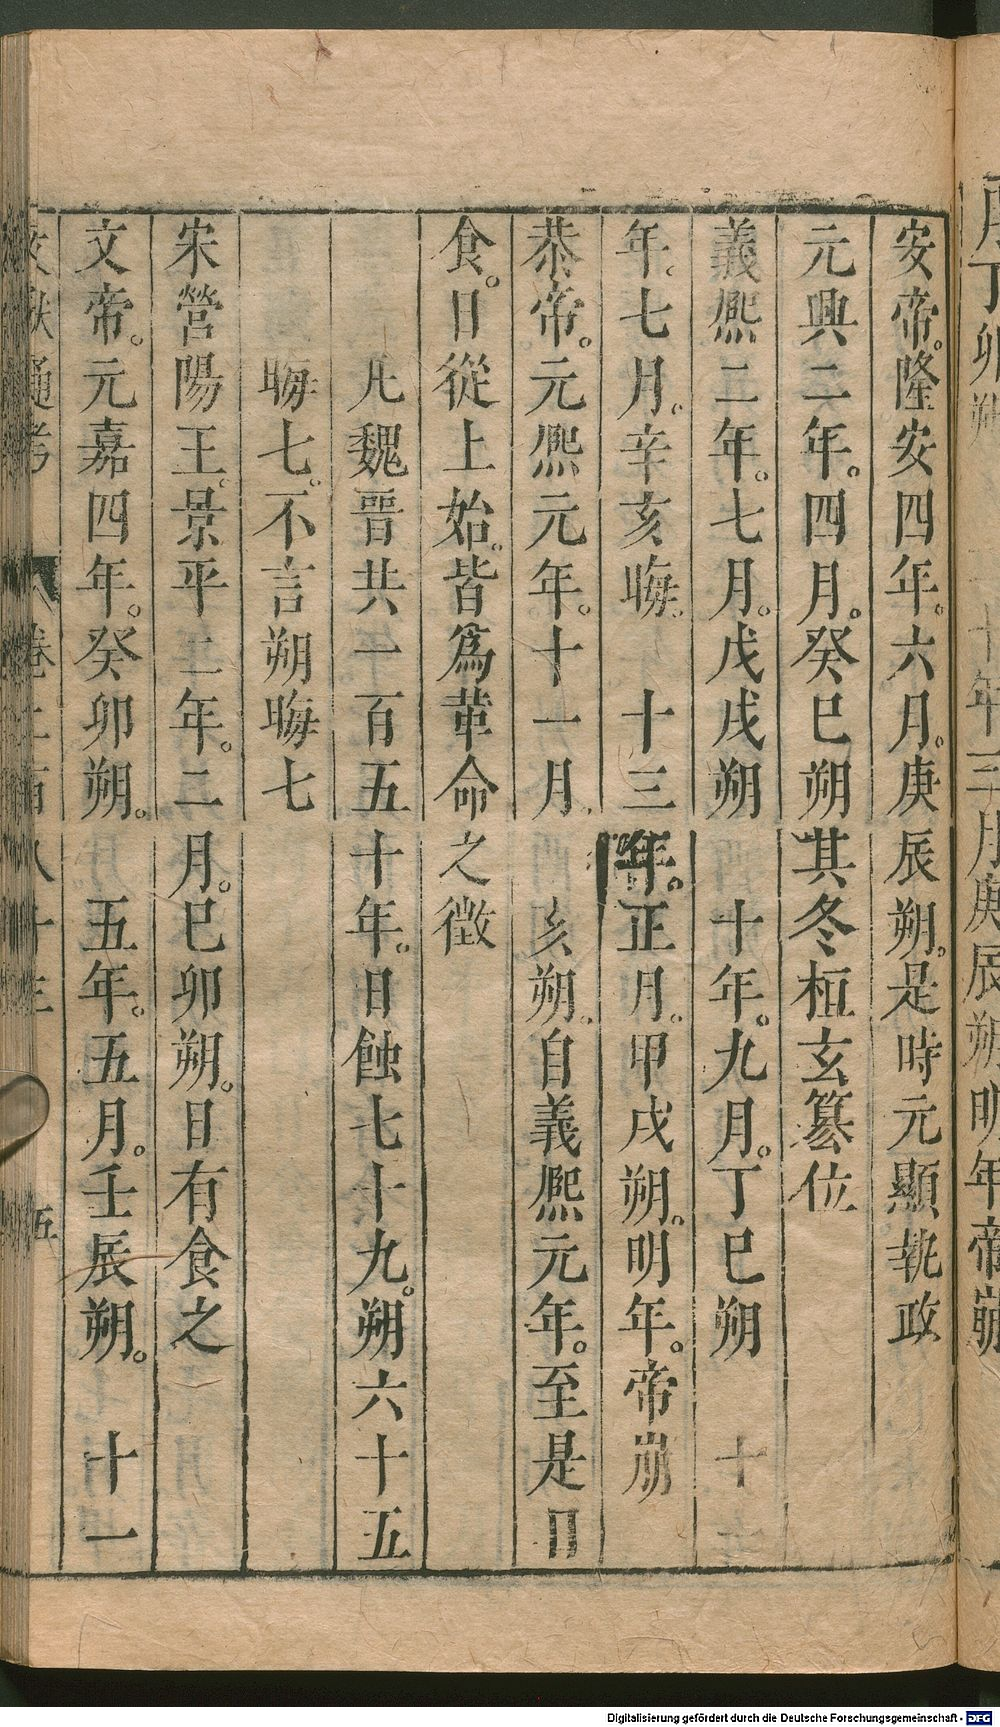 安帝。隆安四年。六月。庚辰朔。是時元顯執政
元興二年。四月。癸巳朔其冬桓玄篡位
義熙二年。七月。戊戌朔 十年。九月。丁巳朔 十
年。七月。辛亥晦。 十三年。正月。甲戌朔。明年。帝崩
恭帝。元熙元年。十一月。 亥朔。自義熙元年。至是日
食。日從上始。皆爲革命之徵
凡魏晉共一百五十年。日蝕七十九。朔六十五
晦七。不言朔晦七
宋營陽王。景平二年。二月。巳卯朔。日有食之
文帝。元嘉四年。癸卯朔。 五年。五月。壬辰朔。 十一
卯朔 十年三月庚辰朔明年帝崩
五
Digitalisierung gefördert durch die Deutsche Forschungsgemeinschaft - DFG